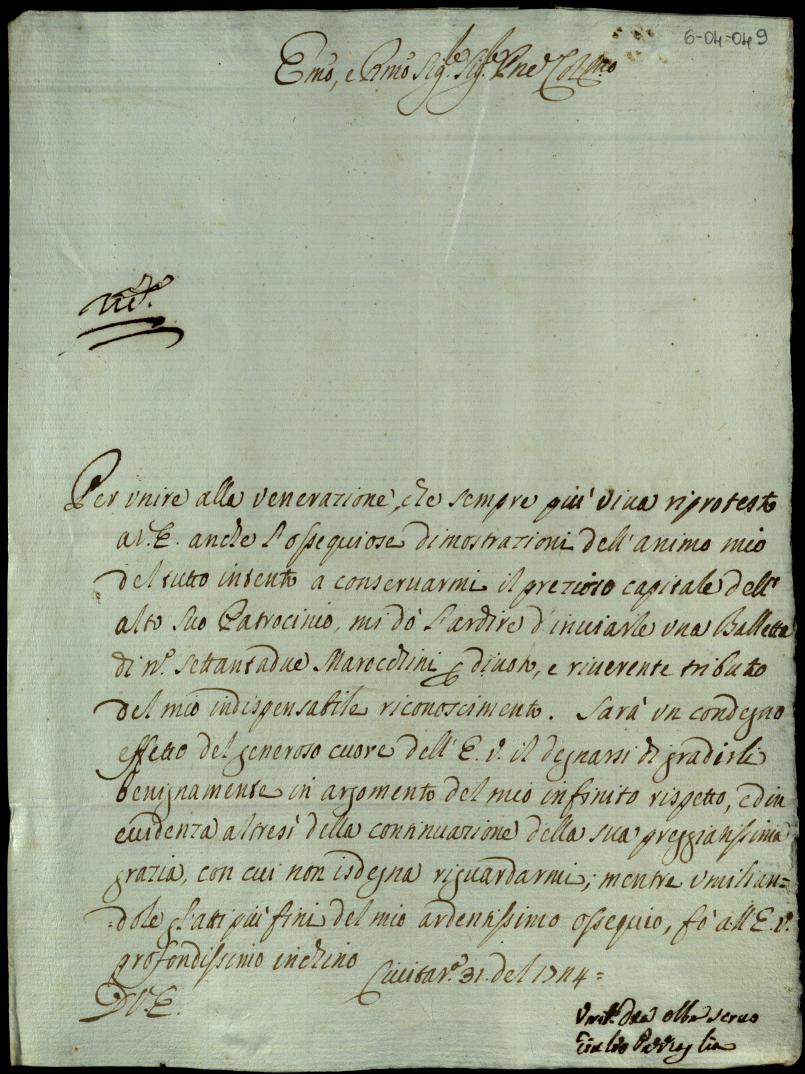 6-04-049
Emo, e Rmo Sigre Sigre Pne Colmo
Per unire alla venerazione, che sempre più viva riprotesto
a V. E. anche l'ossequiose dimostrazioni dell'animo mio
del tutto intento a conservarmi il prezioso capitale dell'
alto suo Patrocinio, mi dò l'ardire d'inviarle una Balletta
di no. settantadue Marocchini p divoto, e riverente tributo
del mio indispensabile riconoscimento. Sarà un condegno
effetto del generoso cuore dell'E. V. il degnarsi di gradirli
benignamente in argomento del mio infinito rispetto, ed in
evidenza altresì della continuazione della sua preggiatissima
grazia, con cui non isdegna riguardarmi; mentre umilian=
=dole gl'atti più fini del mio ardentissimo ossequio, fò all'E. V.
profondissimo inchino
31. del 1744=
D. V. E.
Umilo. Devo Obbo servo